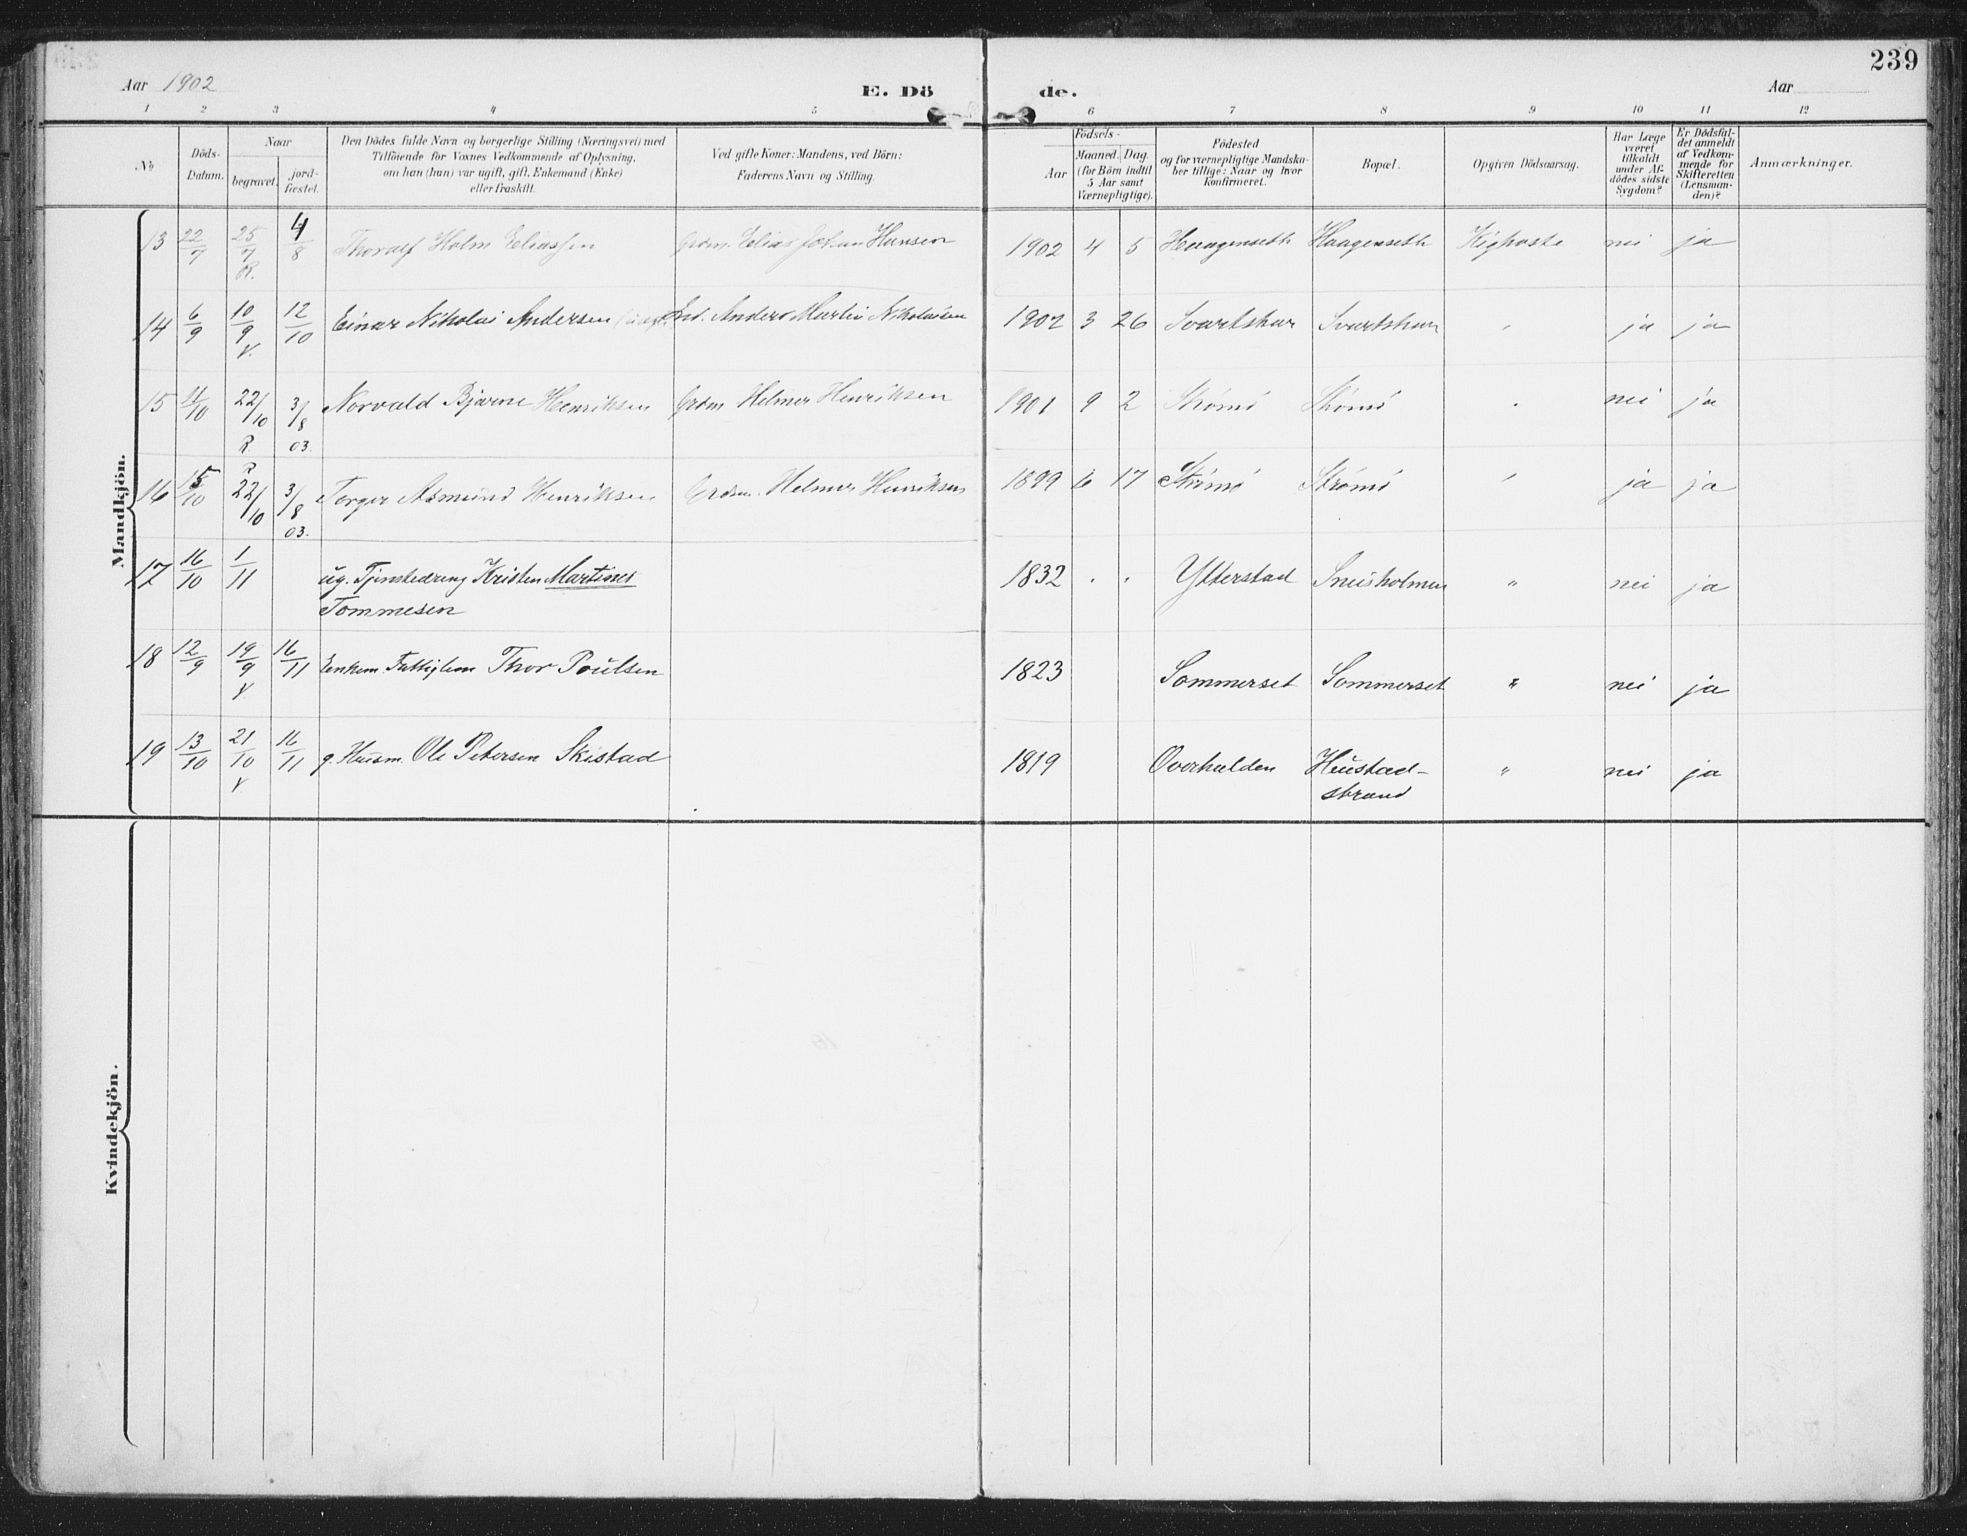 239
Aar 1902
E. Dö de.
Aar
1 2 3 4 5 6 7 8 9 10 11 12
No
Döds-
Datum.
Naar
begravet.
jord-
fæstet.
Den Dödes fulde Navn og borgerlige Stilling (Næringsvei) med
Tilföiende for Voxnes Vedkommende af Oplysning,
om han (hun) var ugift, gift, Enkemand (Enke)
eller fraskilt.
Ved gifte Koner: Mandens, ved Börn:
Faderens Navn og Stilling.
Födsels-
Aar
Maaned. Dag.
(for Börn indtil
5 Aar samt
Værnepligtige).
Födested
og for værnepligtige Mandska-
ber tillige: Naar og hvor
konfirmeret.
Bopæl.
Opgiven Dödsaarsag.
Har Læge
været
tilkaldt
under Af-
dödes sidste
Sygdom?
Er Dödsfal-
det anmeldt
af Vedkom-
mende for
Skifteretten
(Lensman-
den)?
Anmærkninger.
Mandkjön.
13 22/7 25/7 R. 4/8 Thoralf Holm Eliassen Grdm. Elias Johan Hansen 1902 4 5 Haagenseth Haagenseth Kighoste nei ja
14 6/9 10/9 V. 12/10 Einar Nikolai Andersen Ind. Anders Martin Nikolaisen 1902 3 26 Svartskar Svartskar " ja ja
15 11/10 22/10 R 3/8 03. Norvald Bjarne Henriksen Grdm Helmer Henriksen 1901 9 2 Strømø Strømø " nei ja
16 15/10 R 22/10 3/8 03. Torger Asmund Henriksen Grdm. Helmer Henriksen 1899 6 17 Strømø Strømø " ja ja
17 16/10 1/11 ug. Tjenstedreng Kristen Martines 1832 " " Ytterstad Sneisholmen " nei ja
Tommesen
18 12/9 19/9 V. 16/11 Enkem. Fattiglem Thor Poulsen 1823 Sommerset Sommerset " nei ja
19 13/10 21/10 V. 16/11 g. Husm. Ole Petersen Skistad 1819 Overhalden Heustad- " nei ja
strand
Kvindekjön.